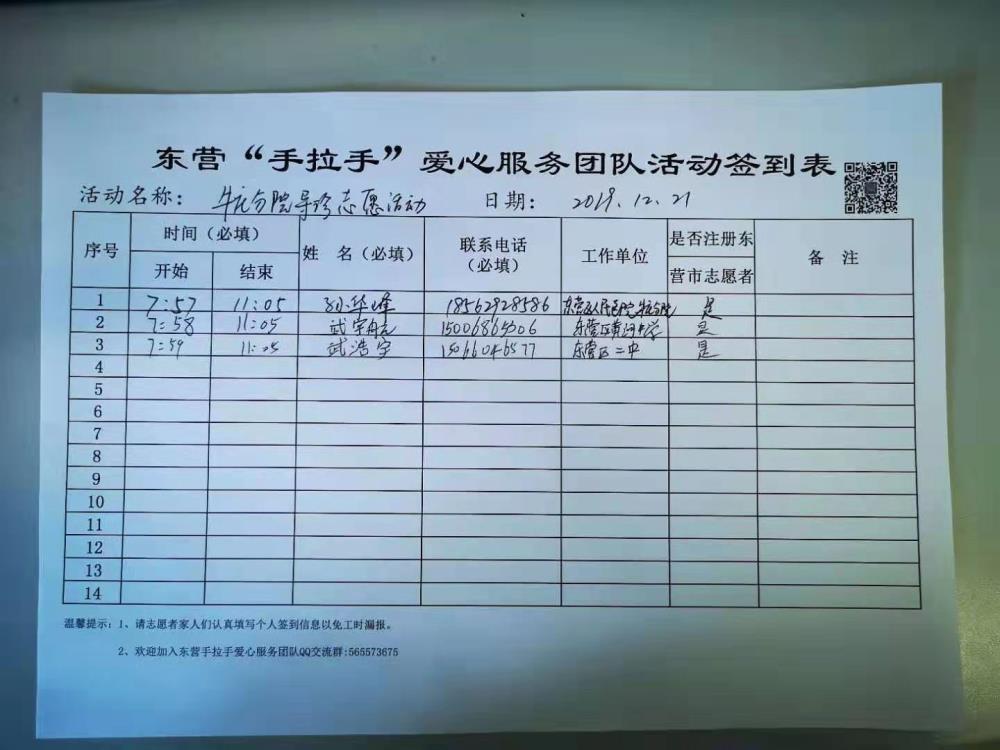 东营“手拉手”爱心服务团队活动签到表
活动名称： 牛庄分院导诊志愿活动 日期： 2019.12.21
序号 时间（必填） 开始 结束 姓 名（必填） 联系电话（必填） 工作单位 是否注册东营市志愿者 备 注
1 7:57 11:05 孙华峰 18562928586 东营区人民医院牛庄分院 是
2 7:58 11:05 武宇 15006865006 东营区黄河中学 是
3 7:59 11:05 武浩宇 15066046577 东营区二中 是
4
5
6
7
8
9
10
11
12
13
14
温馨提示：1、请志愿者家人们认真填写个人签到信息以免工时漏报。
2、欢迎加入东营手拉手爱心服务团队QQ交流群:565573675